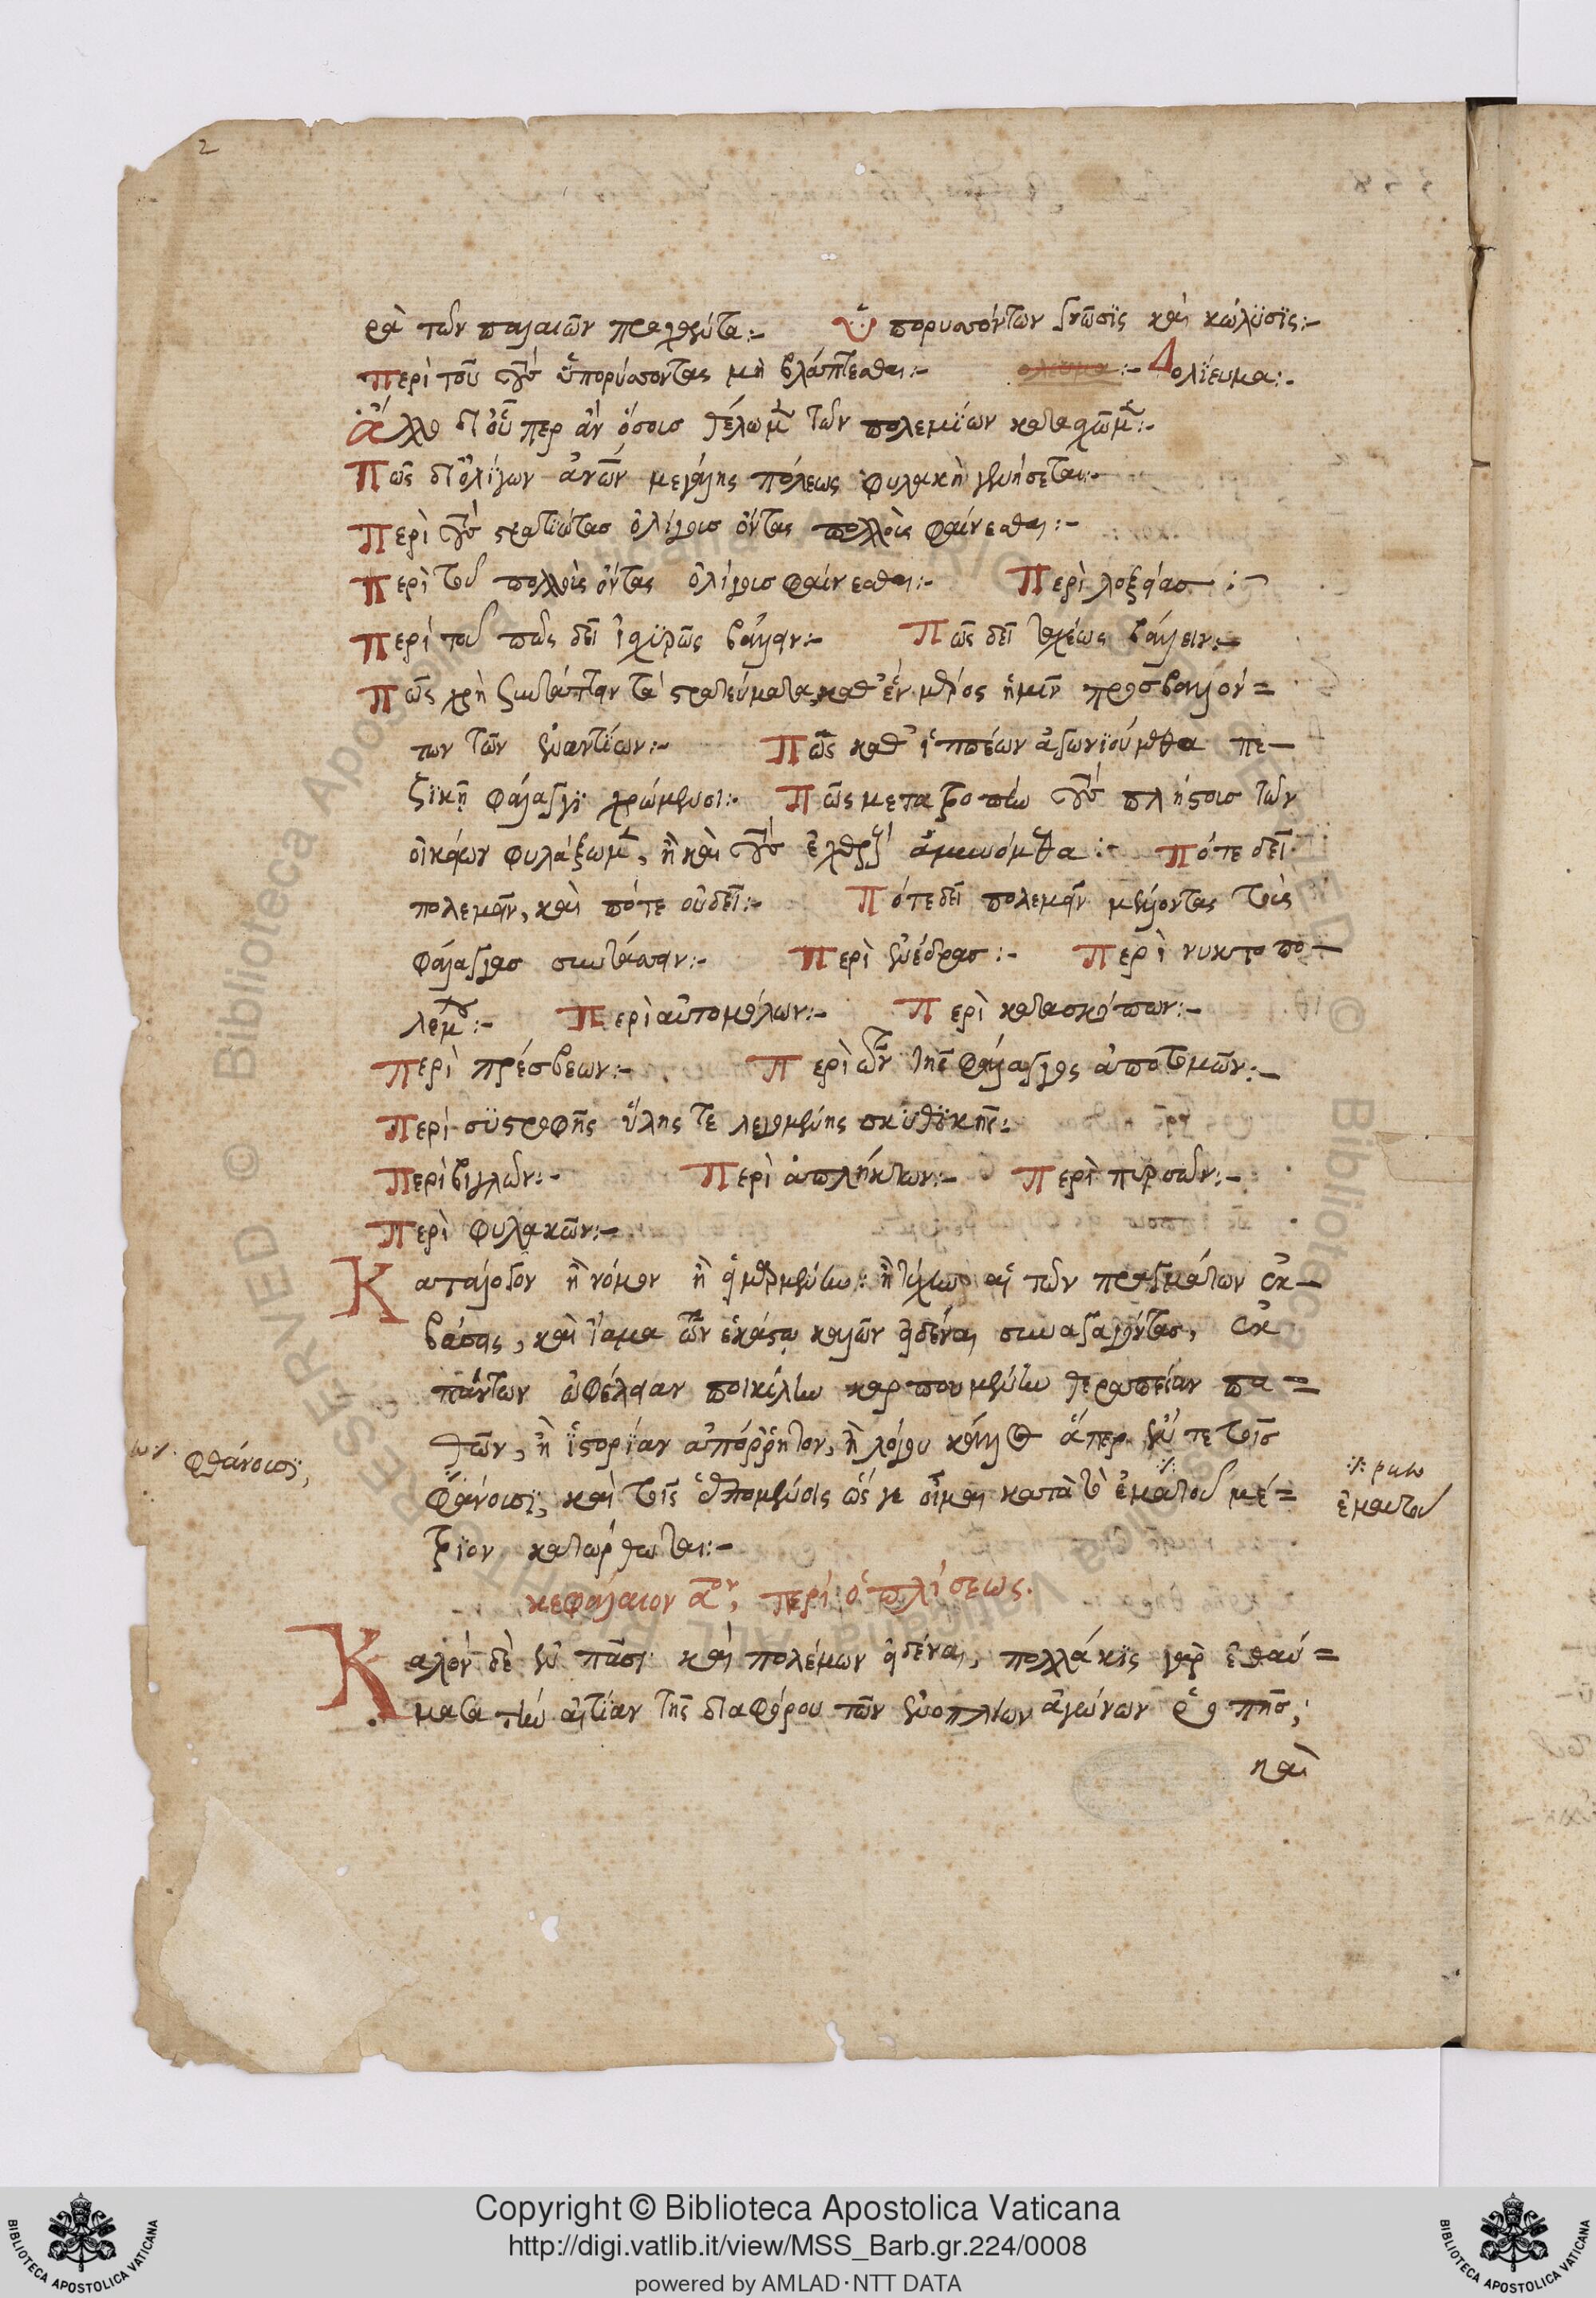 2
ρὰ τῶν παλαιῶν πραχθέντα:- Ὑπορυσσόντων γνῶσϊς καὶ κώλϋσϊς:-
Περὶ τοῦ τοὺς ὑπορύσσοντας μὴ βλάπτεσθαι:- Δολίευμα:-
Ἄλλο δι' οὗπερ ἂν ὅσους θέλωμεν τῶν πολεμίων κατα
Πῶς δι' ὀλίγων ἀνῶν μεγάλης πόλεως φυλακὴ γενήσεται:-
Περὶ τοὺς στρατιώτας ὀλίγους ὄντας πολλοὺς φαίνεσθαι:-
Περὶ τοῦ πολλοὺς ὄντας ὀλίγους φαίνεσθαι:- Περὶ λοξείας :-
Περὶ τοῦ πῶς δεῖ ἰσχυρῶς βάλλειν:- Πῶς δεῖ ταχέως βάλλειν:-
Πῶς χρὴ συντάττειν τὰ στρατεύματα, καθ' ἓν μέρος ἡμῖν προσβαλλόν=
των τῶν ἐναντίων:- Πῶς καθ' ἱππέων ἀγωνιούμεθα πε-
ζϊκῇ φάλαγγι χρώμενοι:- Πῶς μετα τοὺς πλήστους τῶν
οἰκείων φυλάξωμεν, ἢ καὶ τοὺς ἐχθροὺς ἀμυνόμεθα :- Πότε δεῖ
πολεμεῖν, καὶ πότε οὐ δεῖ:- Πότε δεῖ πολεμεῖν μέλλοντας τοὺς
φάλαγγας συντάσσειν:- Περὶ ἐνέδρας:- Περὶ νυκτοπο-
λέμου:- Περὶ αὐτομόλων:- Περὶ κατασκόπων:-
Περὶ πρέσβεων:- Περὶ τῶν τῆς φάλαγγος ἀποτομῶν:-
Περὶ συστροφῆς ὕλης τε λεγομένης σκυθϊκῆς:-
Περὶ βιγλῶν:- Περὶ ἀπλήκτων:- Περὶ πυρσῶν:-
Περὶ φυλακῶν:-
Κατάλογον ἢ νόμον ἢ εἱμαρμένην ἢ τύχην αἱ τῶν πραγμάτων ἐκ-
βάσεις, καὶ τῶν ἑκάστῳ καλὸν εἰδέναι συναγαγόντας, ἐκ
πάντων ὠφέλειαν ποικίλην καρπουμένην θεραπείαν πα=
θῶν, ἢ ἱστορίαν ἀπόρρητον, ἢ λόγου κάλλος ἅπερ ἔν τε τοῖς
φθάνουσϊ, καὶ τοῖς ἑπομένοις ὥς γε οἶμαι κατὰ τὸ ἐματοῦ μέ=
τρϊον κατώρθωται:-
φθάνουσϊ,
ἐμαυτοῦ
κεφάλαιον αον, περὶ ὁπλίσεως.
Καλὸν δὲ ἐν πᾶσι καὶ πολέμων εἰδέναι, πολλάκϊς γὰρ ἐθαύ=
μασα τὴν αἰτίαν τῆς διαφόρου τῶν ἐνοπλίων ἀγώνων ῥοπῆς,
καὶ
Copyright © Biblioteca Apostolica Vaticana
http://digi.vatlib.it/view/MSS_Barb.gr.224/0008
powered by AMLAD·NTT DATA
BIBLIOTECA APOSTOLICA VATICANA
BIBLIOTECA APOSTOLICA VATICANA